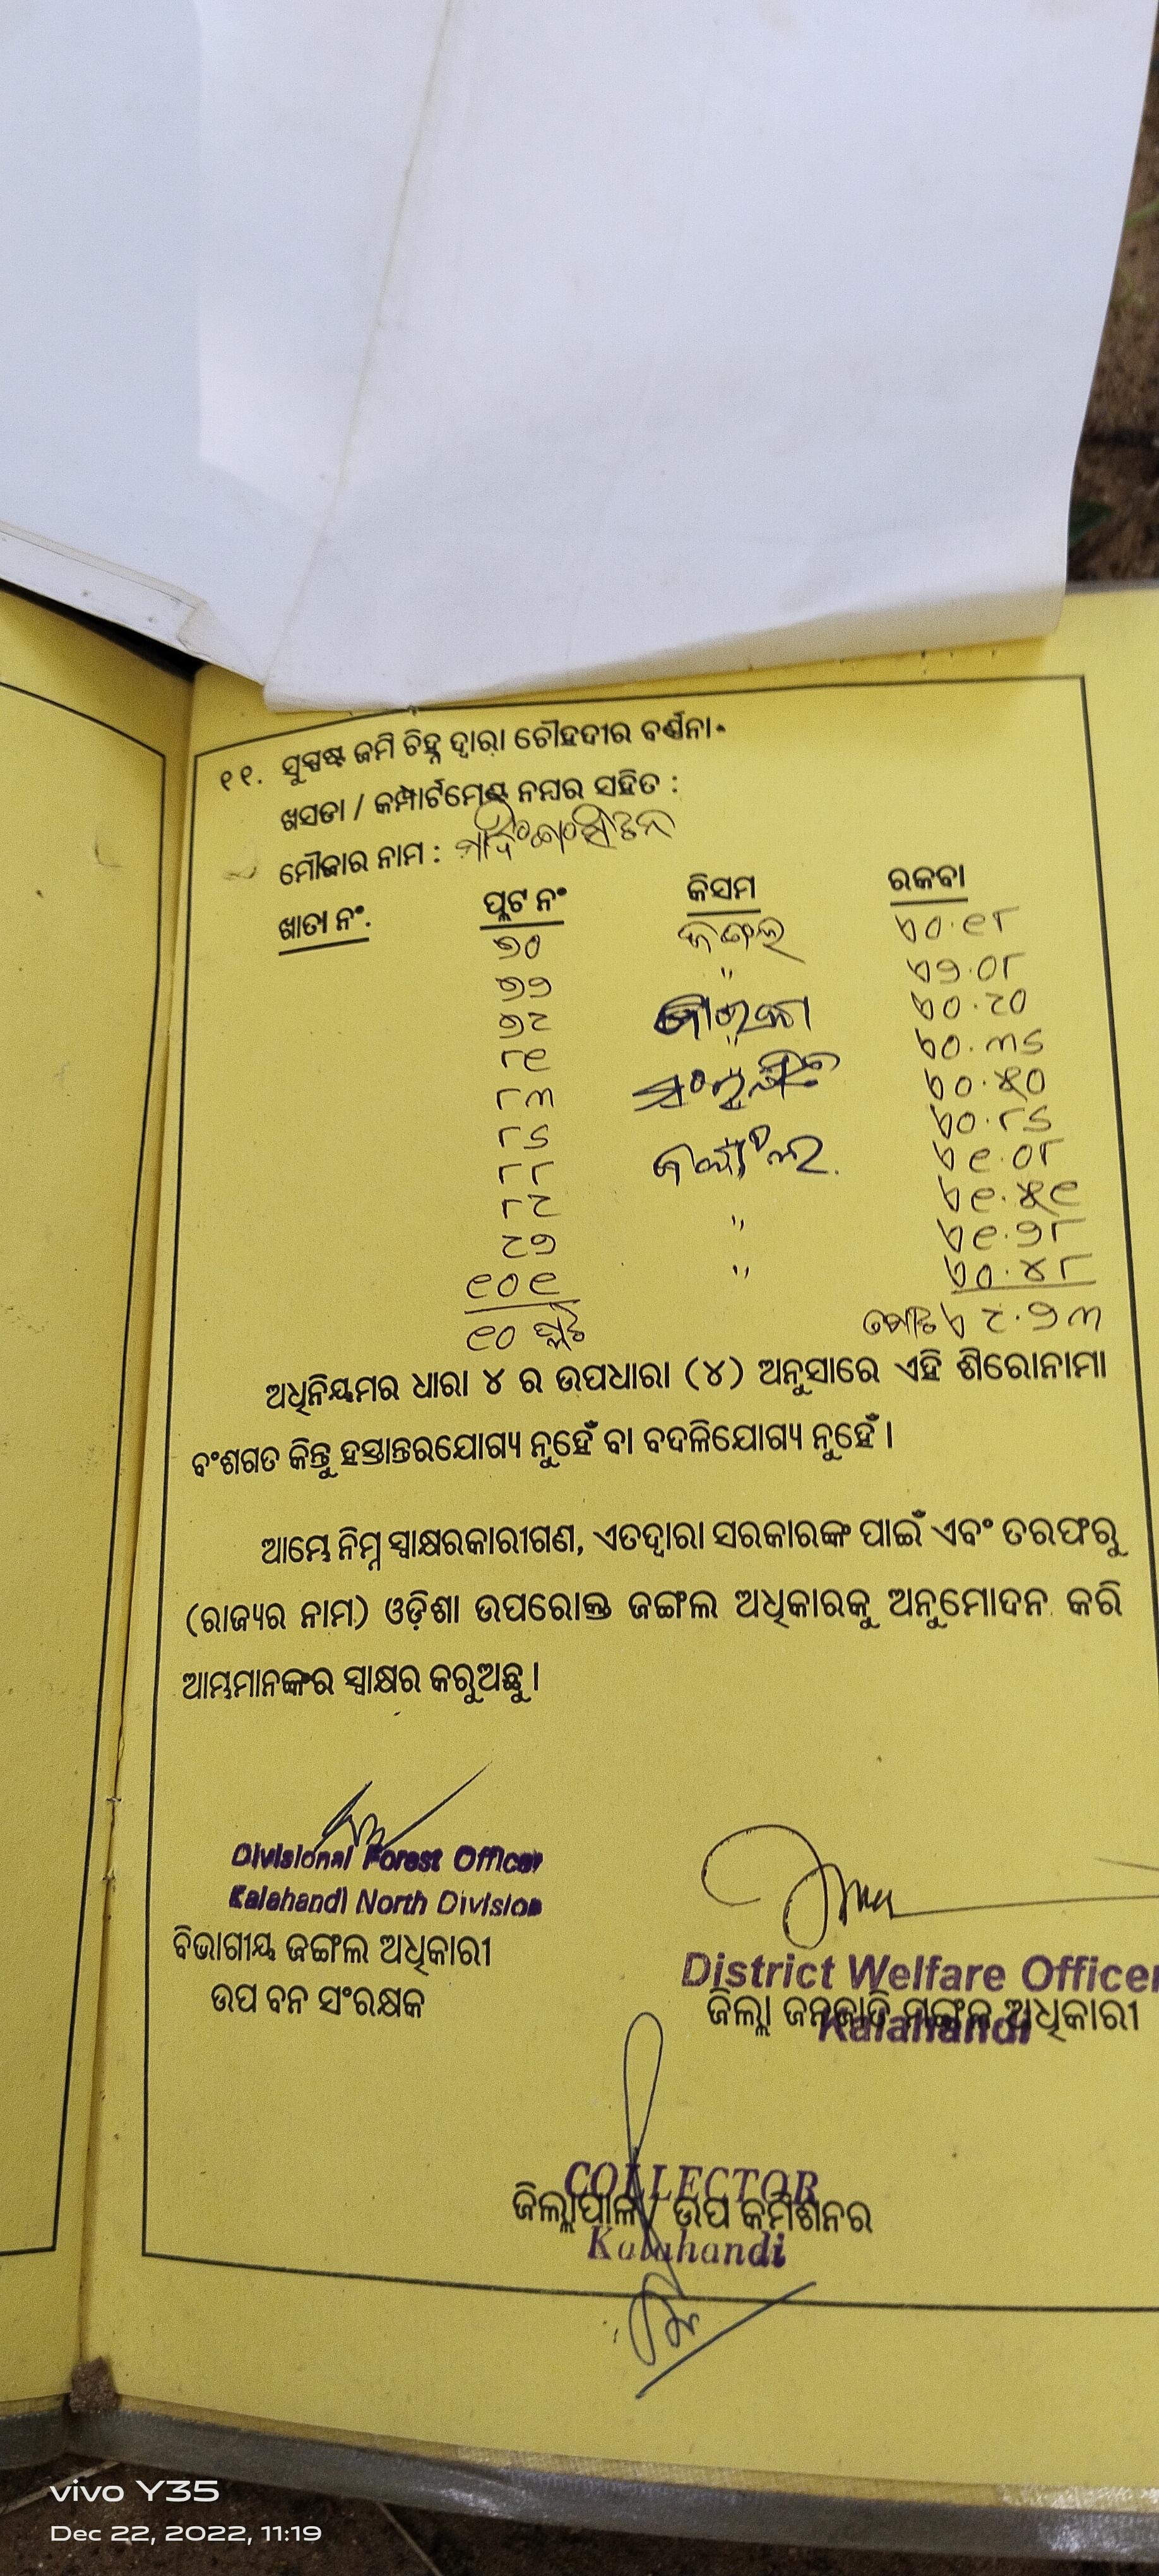 ୧୧. ସୁସ୍ପଷ୍ଟ ଜମି ଚିହ୍ନ ଦ୍ୱାରା ଚୌହଦୀର ବର୍ଣ୍ଣନା
ଖସଡା / କମ୍ପାର୍ଟମେଣ୍ଟ ନମ୍ବର ସହିତ :
ମୌଜାର ନାମ :
ଖାତା ନଂ. ପ୍ଲଟ ନଂ କିସମ ରକବା
୭୦ ଜଙ୍ଗଲ ଏ୦.୧୮
୭୨ " ଏ୨.୦୮
୭୯ ଏ୦.୯୦
୮୧ " ଏ୦.୩୫
୮୩ ଏ୦.୫୦
୮୫ ଏ୦.୮୫
୮୮ ଜଙ୍ଗଲ ଏ୧.୦୮
୮୯ ଏ୧.୫୧
୯୭ " ଏ୧.୨୮
୧୦୧ " ଏ୦.୪୮
୧୦ ପ୍ଲଟ ମୋଟ ଏ ୯.୨୩
ଅଧିନିୟମର ଧାରା ୪ ର ଉପଧାରା (୪) ଅନୁସାରେ ଏହି ଶିରୋନାମା
ବଂଶଗତ କିନ୍ତୁ ହସ୍ତାନ୍ତରଯୋଗ୍ୟ ନୁହେଁ ବା ବଦଳିଯୋଗ୍ୟ ନୁହେଁ ।
ଆମ୍ଭେ ନିମ୍ନ ସ୍ୱାକ୍ଷରକାରୀଗଣ, ଏତଦ୍ୱାରା ସରକାରଙ୍କ ପାଇଁ ଏବଂ ତରଫରୁ
(ରାଜ୍ୟର ନାମ) ଓଡ଼ିଶା ଉପରୋକ୍ତ ଜଙ୍ଗଲ ଅଧିକାରକୁ ଅନୁମୋଦନ କରି
ଆମ୍ଭମାନଙ୍କର ସ୍ୱାକ୍ଷର କରୁଅଛୁ ।
Divisional Forest Officer
Kalahandi North Division
ବିଭାଗୀୟ ଜଙ୍ଗଲ ଅଧିକାରୀ
ଉପ ବନ ସଂରକ୍ଷକ
District Welfare Officer
ଜିଲ୍ଲା ଜନଜାତି ମଙ୍ଗଳ ଅଧିକାରୀ
Kalahandi
COLLECTOR
ଜିଲ୍ଲାପାଳ / ଉପ କମିଶନର
Kalahandi
vivo Y35
Dec 22, 2022, 11:19